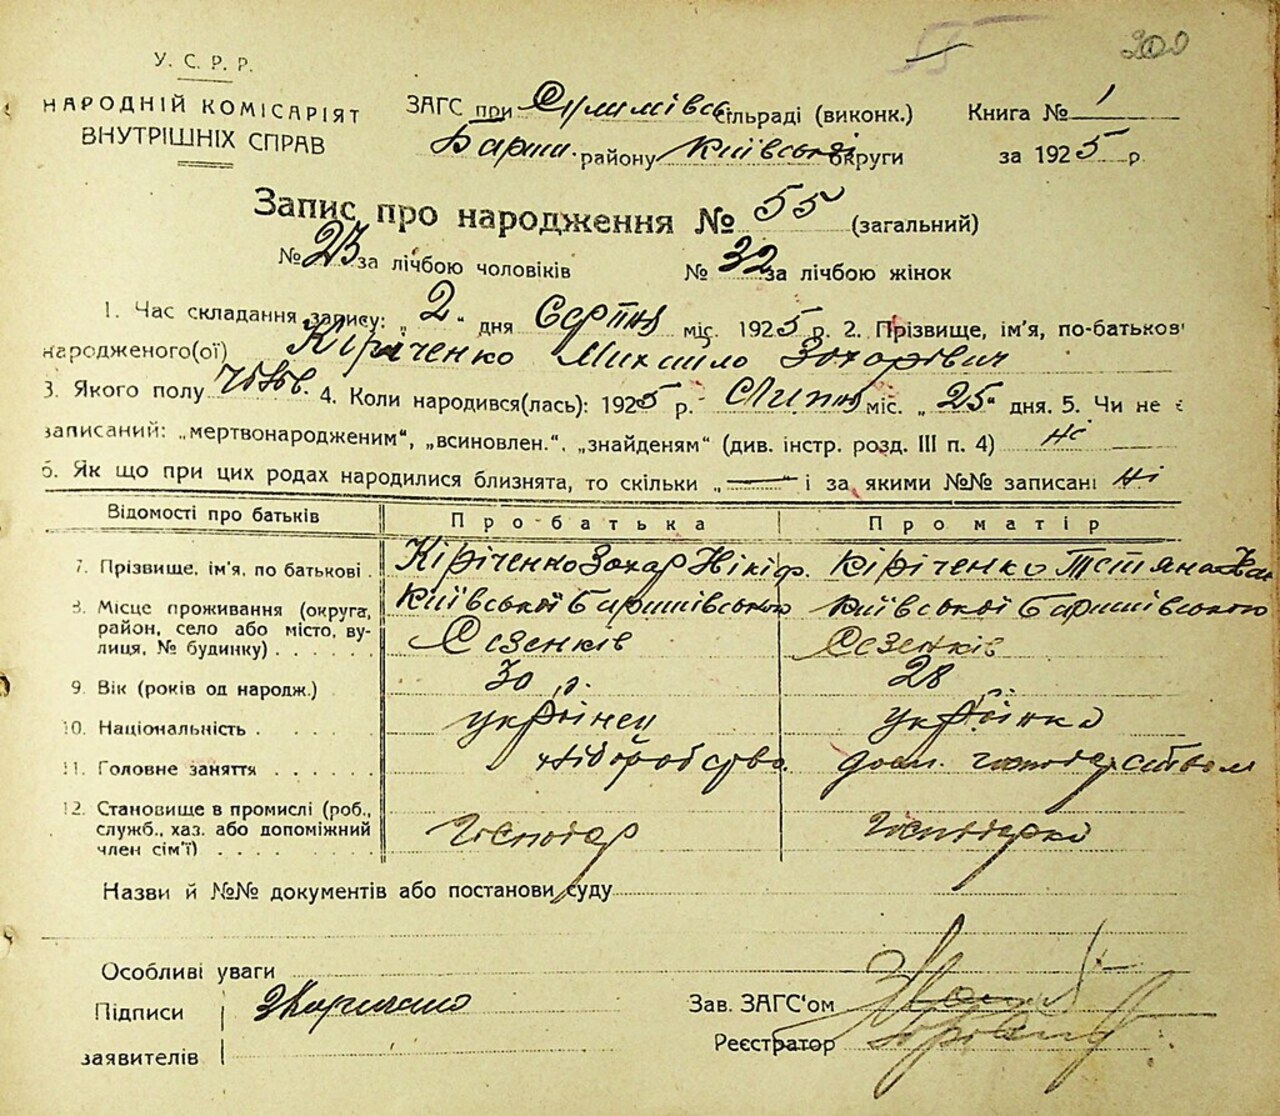 200
У. С. Р. Р.
НАРОДНІЙ КОМІСАРІЯТ
ВНУТРІШНІХ СПРАВ
ЗАГС при Сулимівс сільраді (виконк.)
Бариш. району Київської округи
Книга № 1
за 1925 р.
Запис про народження № 55 (загальний)
№ 23 за лічбою чоловіків № 32 за лічбою жінок
1. Час складання запису: „ 2 “ дня Серпня міс. 1925 р. 2. Прізвище, ім'я, по-батьков
народженого(ої) Кіріченко Михайло Захарович
3. Якого полу чолов. 4. Коли народився(лась): 1925 р. Липня міс. „ 25 “ дня. 5. Чи не є
записаний: „мертвонародженим“, „всиновлен.“, „знайденям“ (див. інстр. розд. III п. 4) ні
6. Як що при цих родах народилися близнята, то скільки „ — і за якими №№ записані ні
Відомості про батьків Про батька Про матір
7. Прізвище, ім'я, по батькові . Кіріченко Захар Нікіф. Кіріченко Тетяна
8. Місце проживання (округа, Київської Баришівського Київської Баришівського
район, село або місто, ву-
лиця, № будинку) . . . . . Сезенків Сезенків
9. Вік (років од народж.) 30 р. 28
10. Національність . . . . . українец українка
11. Головне заняття . . . . . хліборобство дом. господарством
12. Становище в промислі (роб.,
служб., хаз. або допоміжний Господар Господарка
член сім'ї) . . . . . . .
Назви й №№ документів або постанови суду
Особливі уваги
Підписи
Зав. ЗАГС'ом
заявителів
Реєстратор